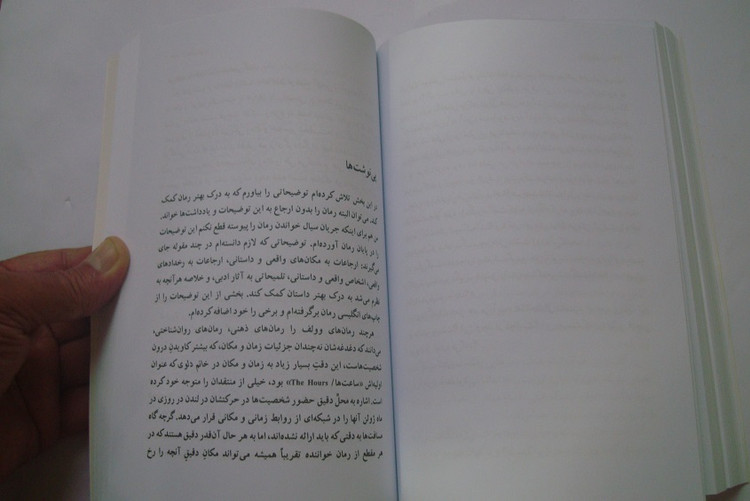 پی‌نوشت‌ها
در این بخش تلاش کرده‌ام توضیحاتی را بیاورم که به درک بهتر رمان کمک
کند. می‌توان البته رمان را بدون ارجاع به این توضیحات و یادداشت‌ها خواند.
من هم برای اینکه جریان سیال خواندن رمان را پیوسته قطع نکنم این توضیحات
را در پایان رمان آورده‌ام. توضیحاتی که لازم دانسته‌ام در چند مقوله جای
می‌گیرند: ارجاعات به مکان‌های واقعی و داستانی، ارجاعات به رخدادهای
واقعی، اشخاص واقعی و داستانی، تلمیحاتی به آثار ادبی، و خلاصه هرآنچه به
نظرم می‌شد به درک بهتر داستان کمک کند. بخشی از این توضیحات را از
چاپ‌های انگلیسی رمان برگرفته‌ام و برخی را خود اضافه کرده‌ام.
هرچند رمان‌های وولف را رمان‌های ذهنی، رمان‌های روان‌شناختی،
می‌دانند که دغدغه‌شان نه‌چندان جزئیات زمان و مکان، که بیشتر کاویدنِ درون
شخصیت‌هاست، این دقت بسیار زیاد به زمان و مکان در خانم دلوی که عنوان
اولیه‌اش «ساعت‌ها / The Hours» بود، خیلی از منتقدان را متوجه خود کرده
است. اشاره به محلِّ دقیق حضور شخصیت‌ها در حرکتشان در لندن در روزی در
ماه ژوئن آنها را در شبکه‌ای از روابط زمانی و مکانی قرار می‌دهد. گرچه گاه
مسافت‌ها به دقتی که باید ارائه نشده‌اند، اما به هر حال آن‌قدر دقیق هستند که در
هر مقطع از رمان خواننده تقریباً همیشه می‌تواند مکانِ دقیقِ آنچه را رخ